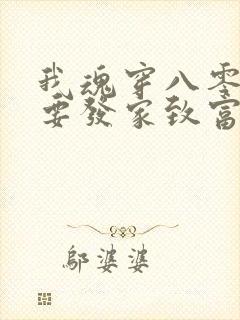 我魂穿八零
要發家致富
鄔婆婆